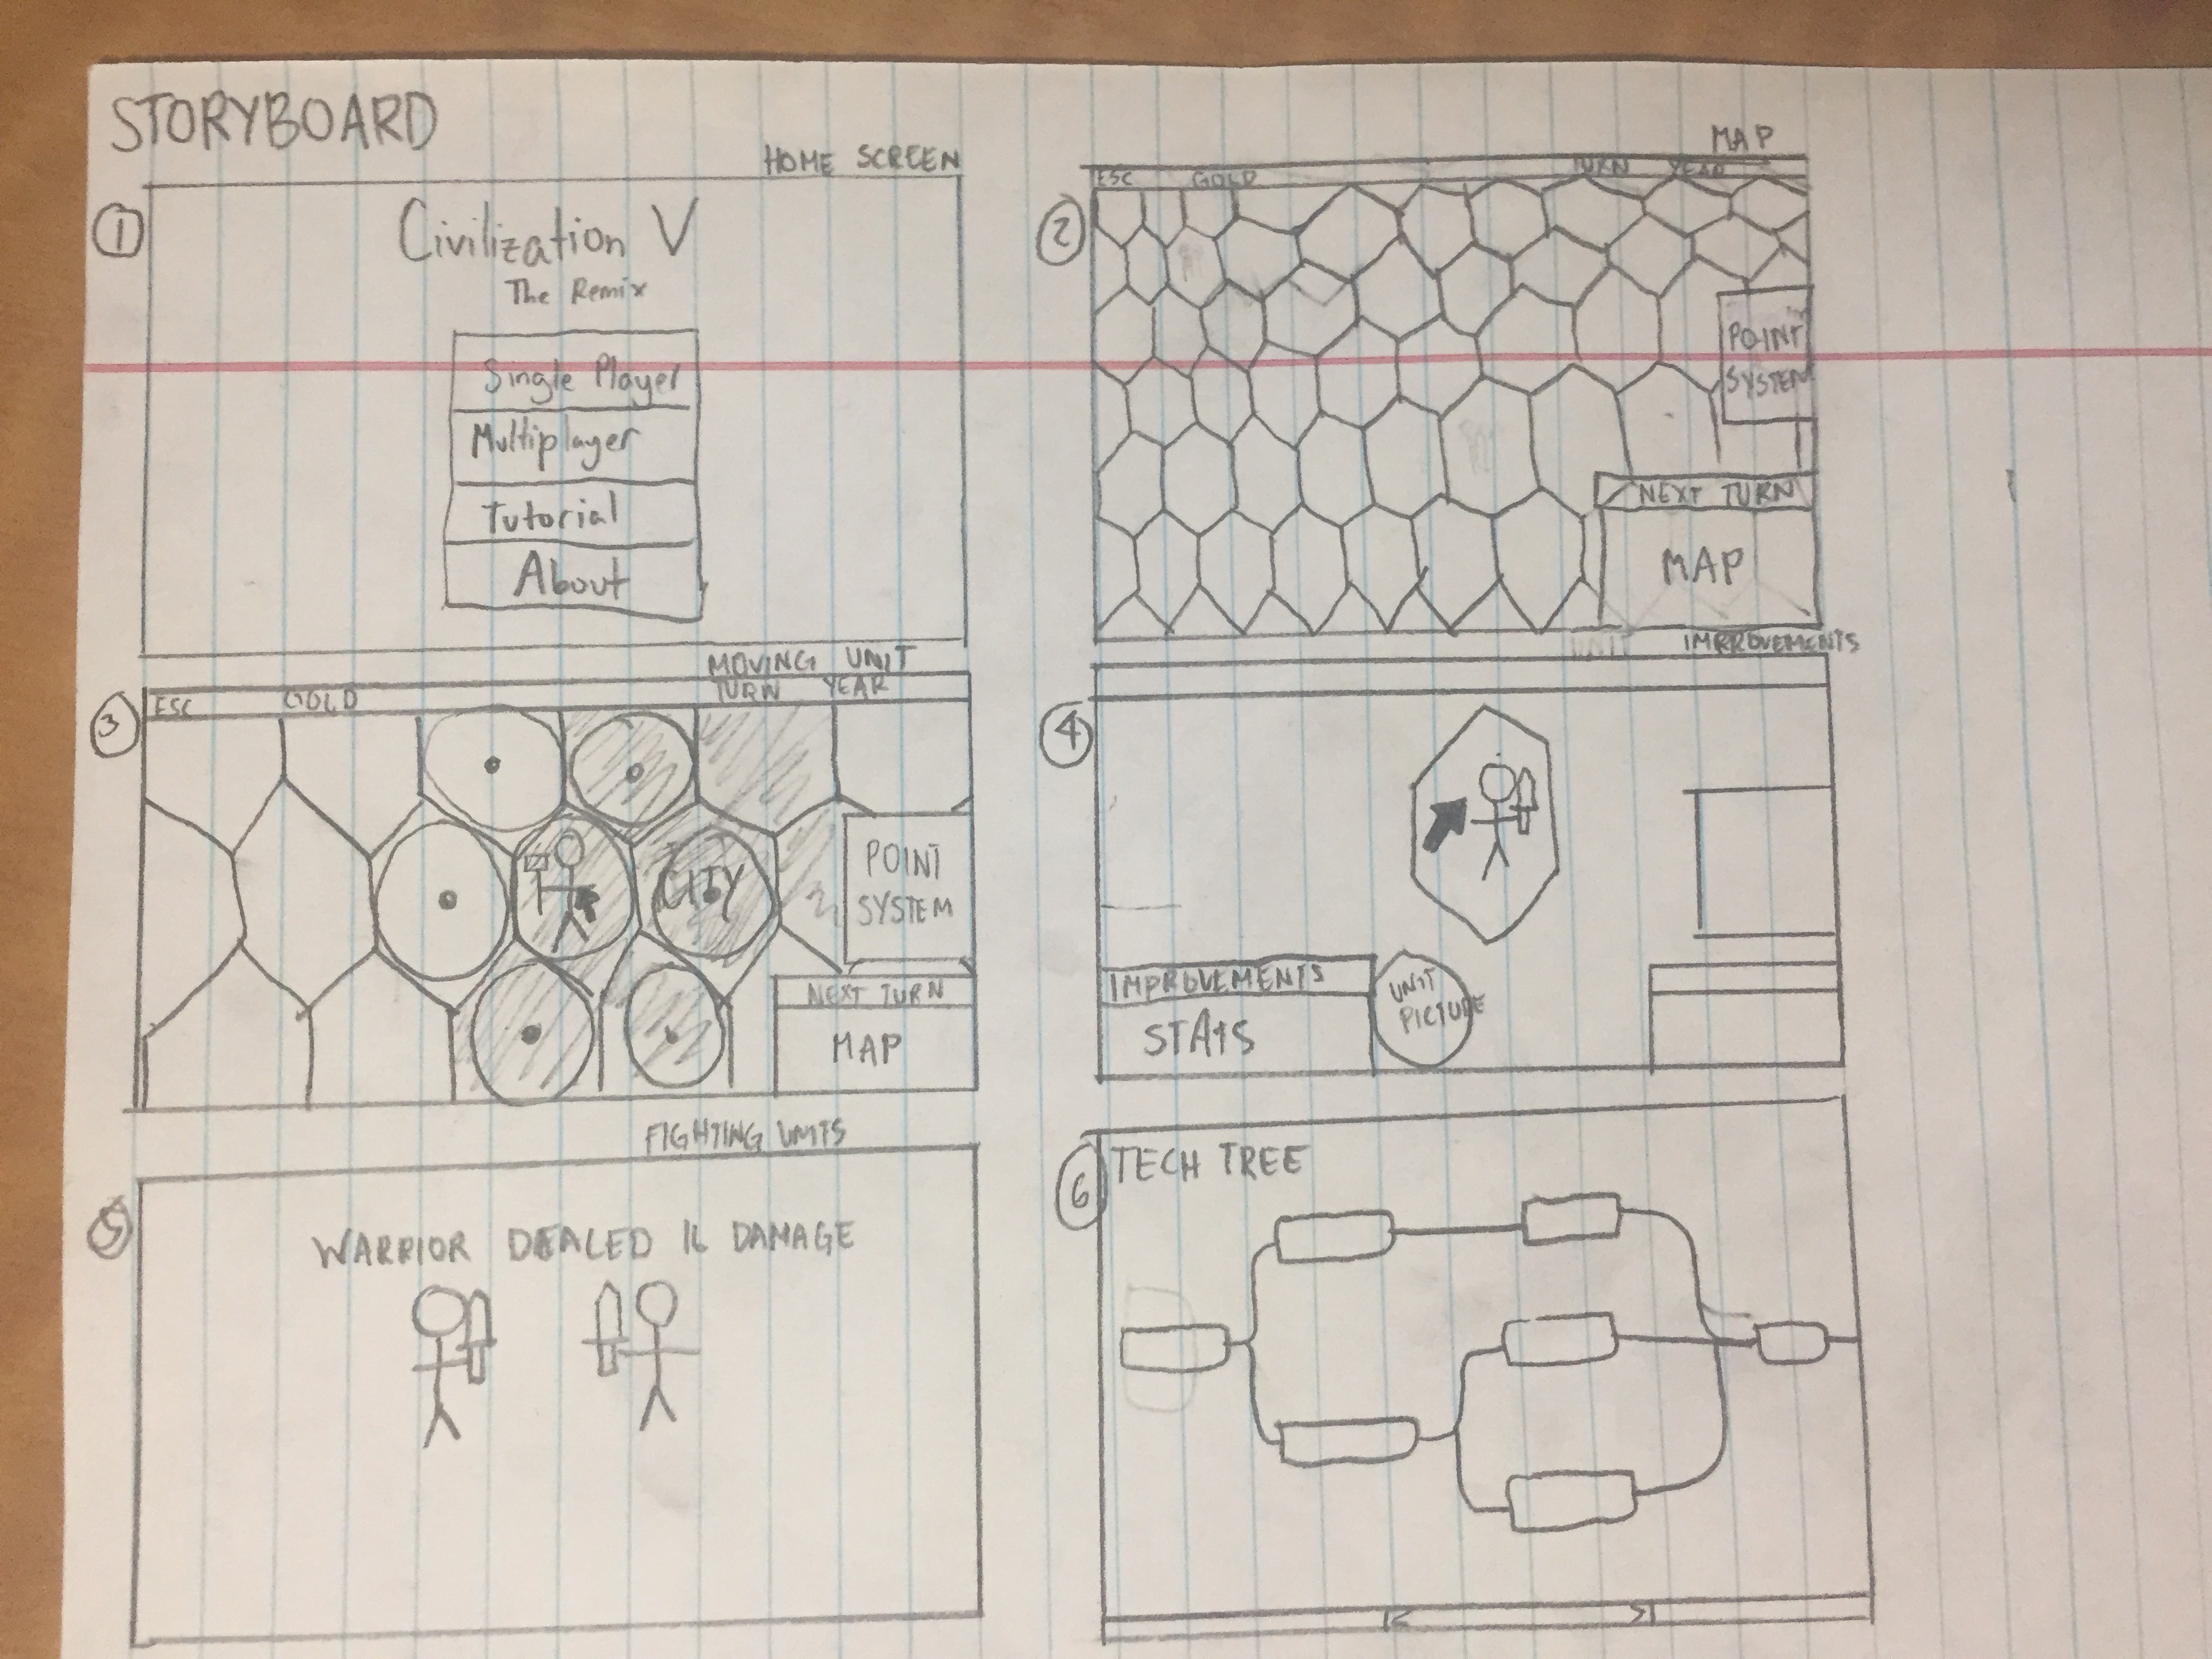 STORYBOARD
HOME SCREEN
1
Civilization V
The Remix
Single Player
Multiplayer
Tutorial
About
MAP
2
ESC GOLD TURN YEAR
POINT
SYSTEM
NEXT TURN
MAP
MOVING UNIT
3
ESC GOLD TURN YEAR
CITY
POINT
SYSTEM
NEXT TURN
MAP
UNIT IMPROVEMENTS
4
IMPROVEMENTS
STATS
UNIT
PICTURE
FIGHTING UNITS
5
WARRIOR DEALED 16 DAMAGE
6
TECH TREE